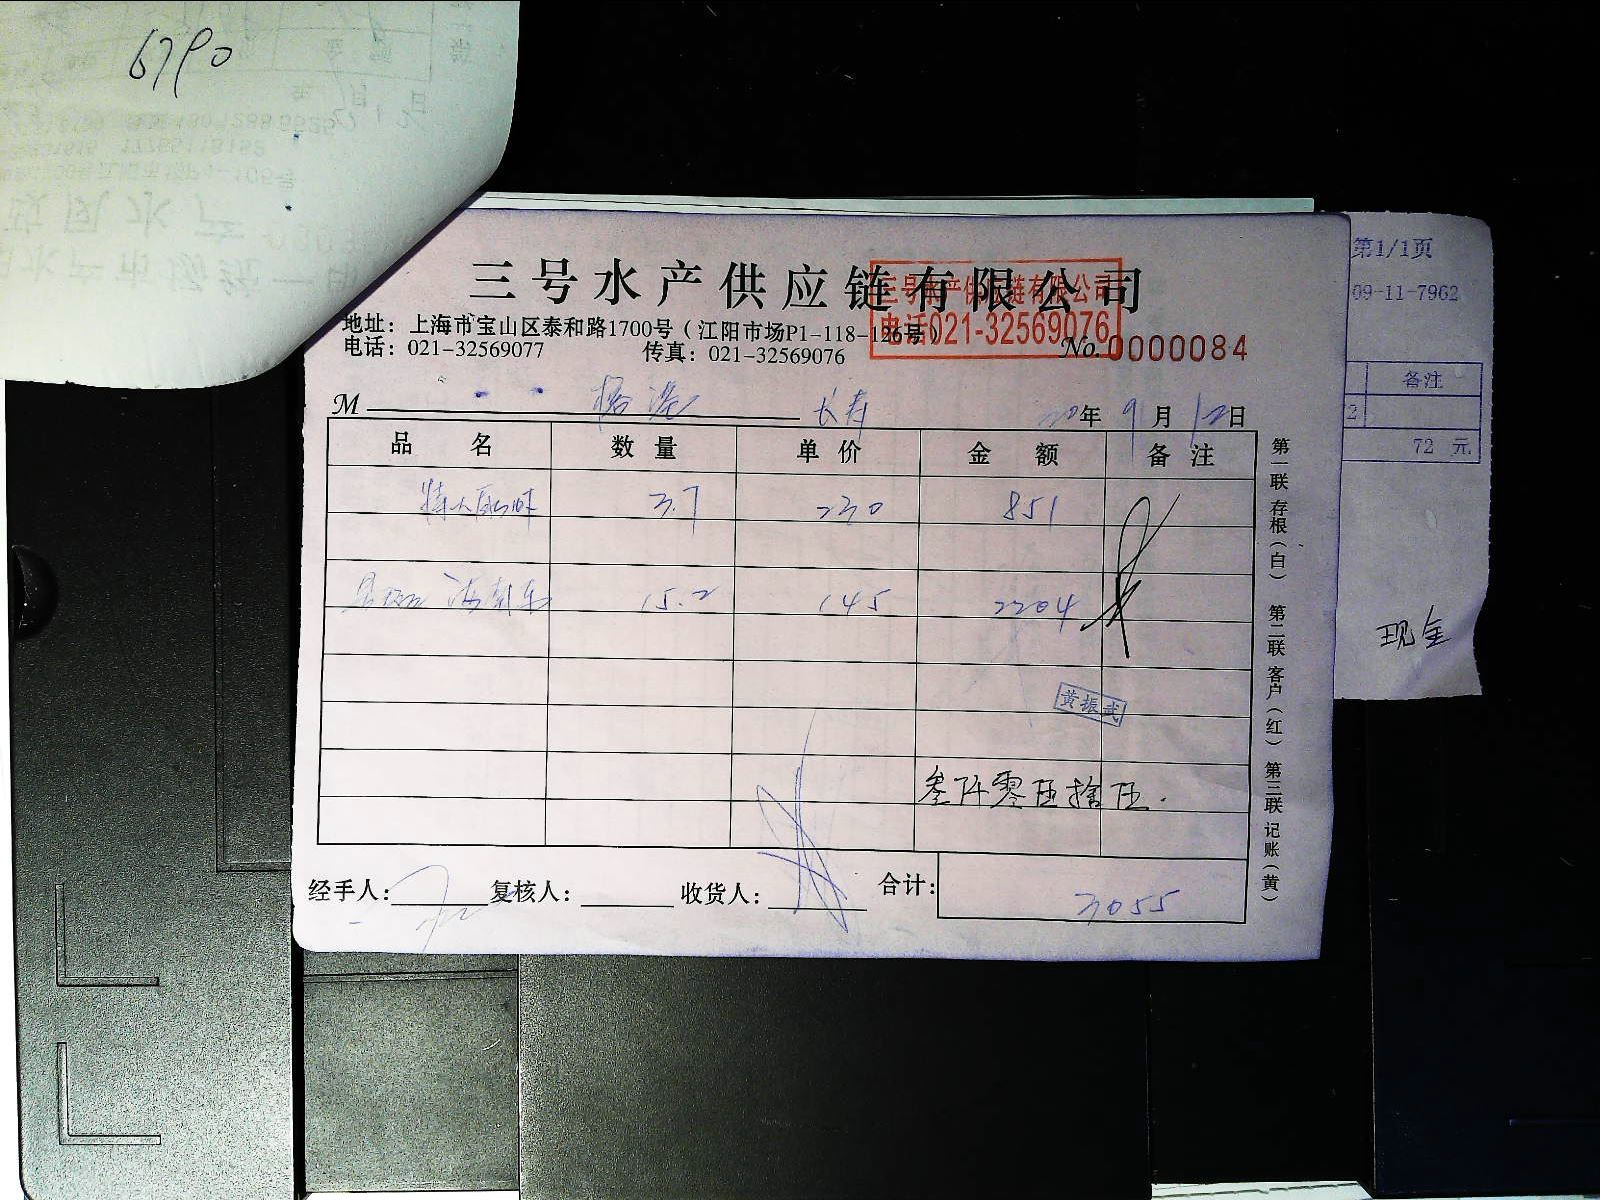 6790
三号水产供应链有限公司
三号水产供应链有限公司
电话021-32569076
地址：上海市宝山区泰和路1700号（江阳市场P1-118-126号）
电话：021-32569077 传真：021-32569076
No.0000084
M 长寿 20年9月12日
品名 数量 单价 金额 备注
3.7 230 851
15.2 145 2204
黄振武
叁仟零伍拾伍.
经手人： 复核人： 收货人： 合计： 3055
第一联 存根（白） 第二联 客户（红） 第三联 记账（黄）
第1/1页
09-11-7962
备注
2
72 元
现金